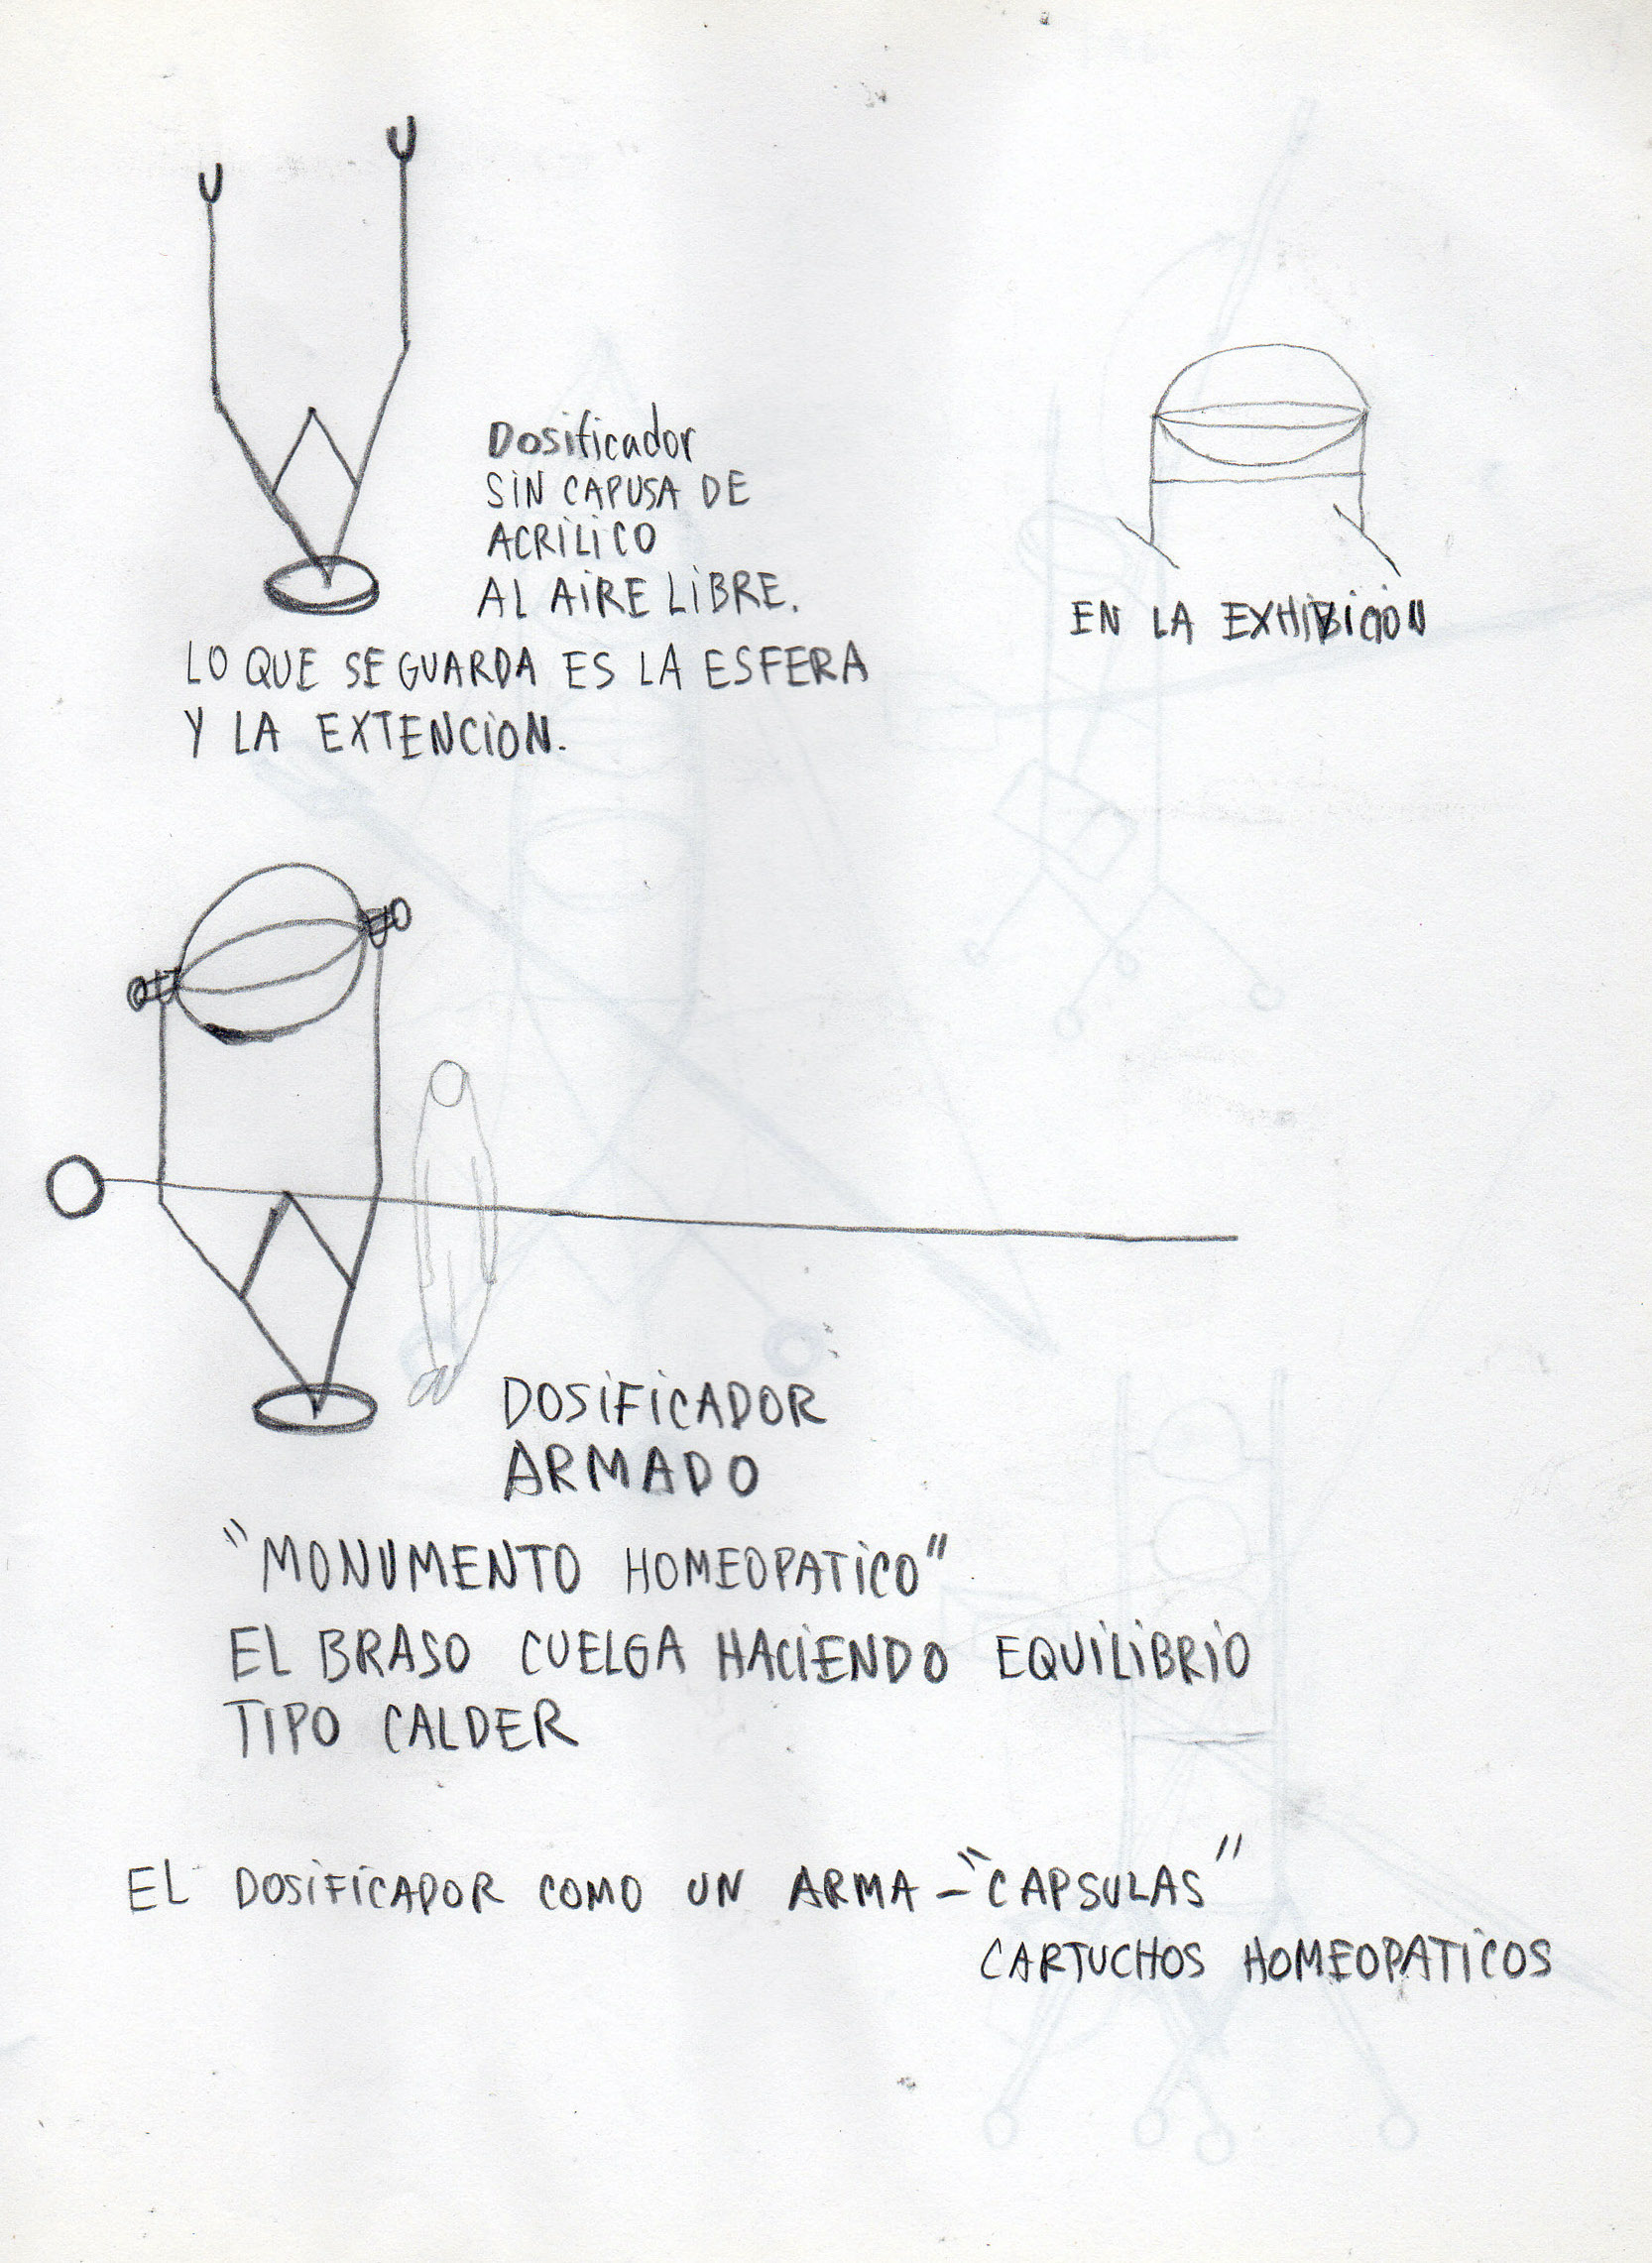 Dosificador
SiN CAPUSA DE
ACRiLiCO
AL AiRE LiBRE.
LO QUE SE GUARDA ES LA ESFERA
Y LA EXTENCiON.
EN LA EXHiBiCiON
DOSiFiCADOR
ARMADO
"MONUMENTO HOMEOPATiCO"
EL BRASO CUELGA HACiENDO EQUiLiBRiO
TiPO CALDER
EL DOSiFiCADOR COMO UN ARMA - "CAPSULAS"
CARTUCHOS HOMEOPATiCOS